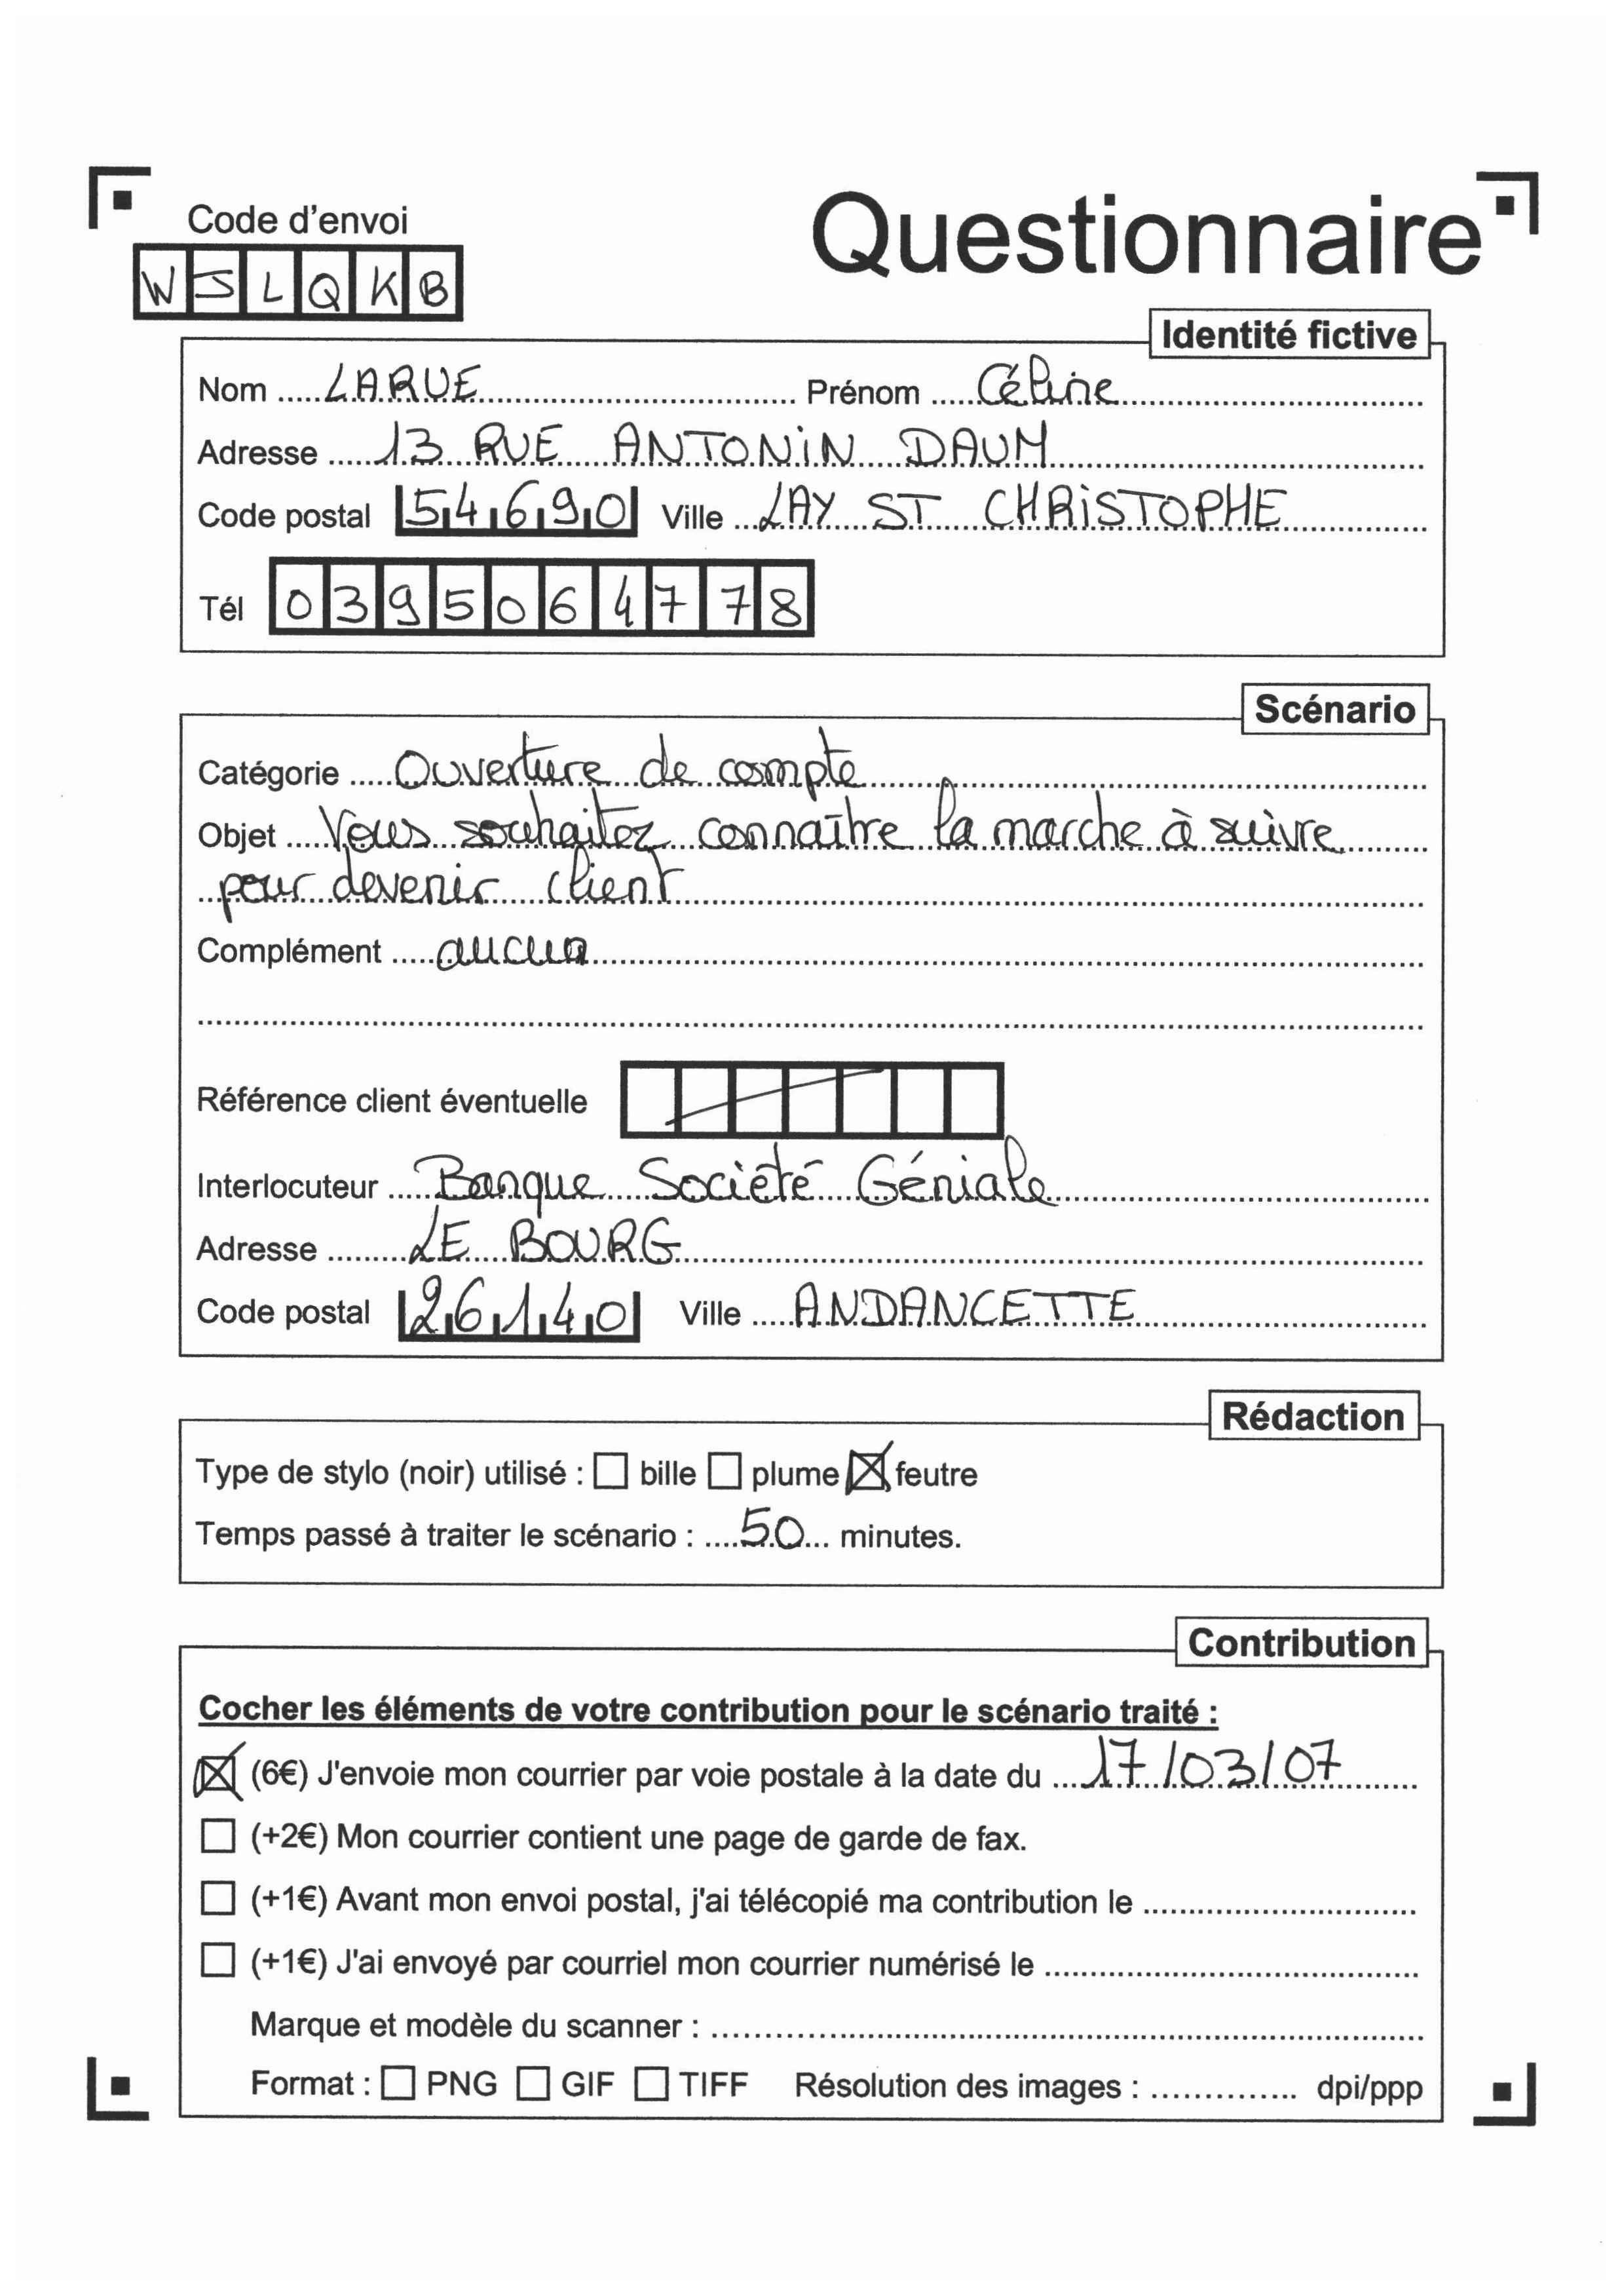 Code d'envoi
Questionnaire
WSLQKB
Identité fictive
Nom LARUE Prénom Céline
Adresse 13 RUE ANTONIN DAUM
Code postal 54690 Ville LAY ST CHRISTOPHE
Tél 0395064778
Scénario
Catégorie Ouverture de compte
Objet Vous souhaitez connaître la marche à suivre
pour devenir client
Complément aucun
Référence client éventuelle
Interlocuteur Banque Société Géniale
Adresse LE BOURG
Code postal 26140 Ville ANDANCETTE
Rédaction
Type de stylo (noir) utilisé : ☐ bille ☐ plume ☒ feutre
Temps passé à traiter le scénario : 50 minutes.
Contribution
Cocher les éléments de votre contribution pour le scénario traité :
☒ (6€) J'envoie mon courrier par voie postale à la date du 17/03/07
☐ (+2€) Mon courrier contient une page de garde de fax.
☐ (+1€) Avant mon envoi postal, j'ai télécopié ma contribution le
☐ (+1€) J'ai envoyé par courriel mon courrier numérisé le
Marque et modèle du scanner :
Format : ☐ PNG ☐ GIF ☐ TIFF Résolution des images : dpi/ppp